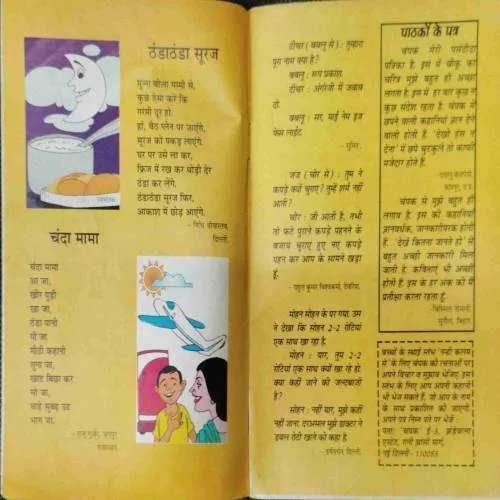 ठंडाठंडा सूरज
मुन्ना बोला मम्मी से,
कुछ ऐसा करें कि
गरमी दूर हो.
हां, बैठ प्लेन पर जाएंगे,
सूरज को पकड़ लाएंगे.
घर पर उसे ला कर,
फ्रिज में रख कर थोड़ी देर
ठंडा कर लेंगे.
ठंडाठंडा सूरज फिर,
आकाश में छोड़ आएंगे.
- निधि श्रीवास्तव,
दिल्ली.
चंदा मामा
चंदा मामा
आ जा,
खीर पूड़ी
खा जा,
ठंडा पानी
पी जा
मीठी कहानी
सुना जा,
खाट बिछा कर
सो जा,
चाहे सुबह उठ
भाग जा.
टीचर (बबलू से) : तुम्हारा
पूरा नाम क्या है?
बबलू : सूर्य प्रकाश.
टीचर : अंगरेजी में जवाब
दो.
बबलू : सर, माई नेम इज
फेम लाईट.
जज (चोर से) : तुम ने
कपड़े क्यों चुराए? तुम्हें शर्म नहीं
आती?
चोर : जी आती है, तभी
तो फटे पुराने कपड़े पहनने के
बजाय चुराए हुए नए कपड़े
पहन कर आप के सामने खड़ा
हूं.
- राहुल कुमार विश्वकर्मा, देवरिया.
मोहन सोहन के घर गया. उस
ने देखा कि सोहन 2-2 रोटियां
एक साथ खा रहा है.
मोहन : यार, तुम 2-2
रोटियां एक साथ क्यों खा रहे हो.
क्या कहीं जाने की जल्दबाजी
है?
सोहन : नहीं यार, मुझे कहीं
नहीं जाना. दरअसल मुझे डाक्टर ने
डबल रोटी खाने को कहा है.
- हर्षवर्धन, दिल्ली.
पाठकों के पत्र
चंपक मेरी पसंदीदा
पत्रिका है. इस में चीकू का
चरित्र मुझे बहुत ही अच्छा
लगता है. इस में हर बार कुछ न
कुछ संदेश रहता है. चंपक में
छपने वाली कहानियां ज्ञान देने
वाली होती हैं. 'देखो हंस न
देना' में छपे चुटकुले तो काफी
मजेदार होते हैं.
कानपुर, उ.प्र.
चंपक से मुझे बहुत ही
लगाव है. इस की कहानियां
ज्ञानवर्धक, जानकारीपरक होती
हैं. 'देखें कितना जानते हो' से
बहुत अच्छी जानकारी मिल
जाती है. कविताएं भी अच्छी
होती हैं. इस के हर अंक की मैं
प्रतीक्षा करता रहता हूं.
बच्चों के स्थाई स्तंभ 'नन्ही कलम
से' के लिए चंपक को रचनाओं पर
अपने विचार व सुझाव भेजिए. इस
स्तंभ के लिए आप अपनी कहानी
भी भेज सकते हैं, जो आप के नाम
के साथ प्रकाशित की जाएगी.
अपने पत्र निम्न पते पर भेजें :
पता: 'चंपक' ई-3, झंडेवाला
एस्टेट, रानी झांसी मार्ग,
नई दिल्ली- 110055